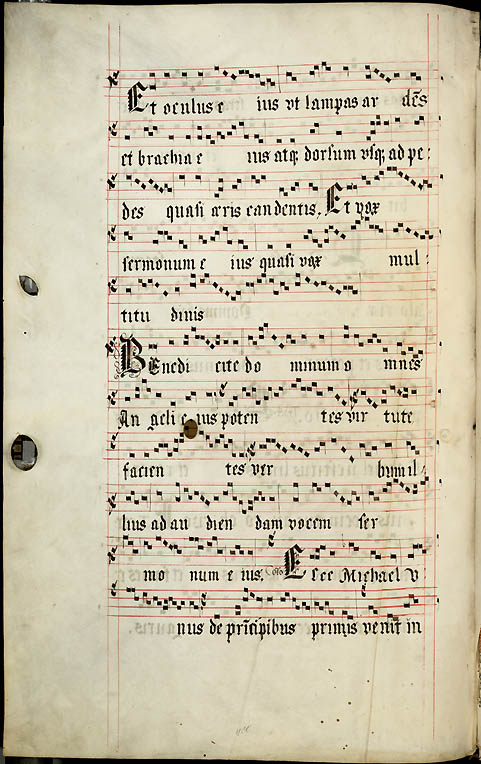 Et oculus e ius vt lampas ar dēs
et brachia e ius atq; dorsum vsq; ad pe:
des quasi æris candentis. Et vox
sermonum e ius quasi vox mul:
titu dinis
BEnedi cite do minum o mnes
An geli e ius poten tes vir tute
facien tes ver bum il:
lius ad au dien dam vocem ser
mo num e ius. Ecce Michael v
nus de prīcipibus primis venit in